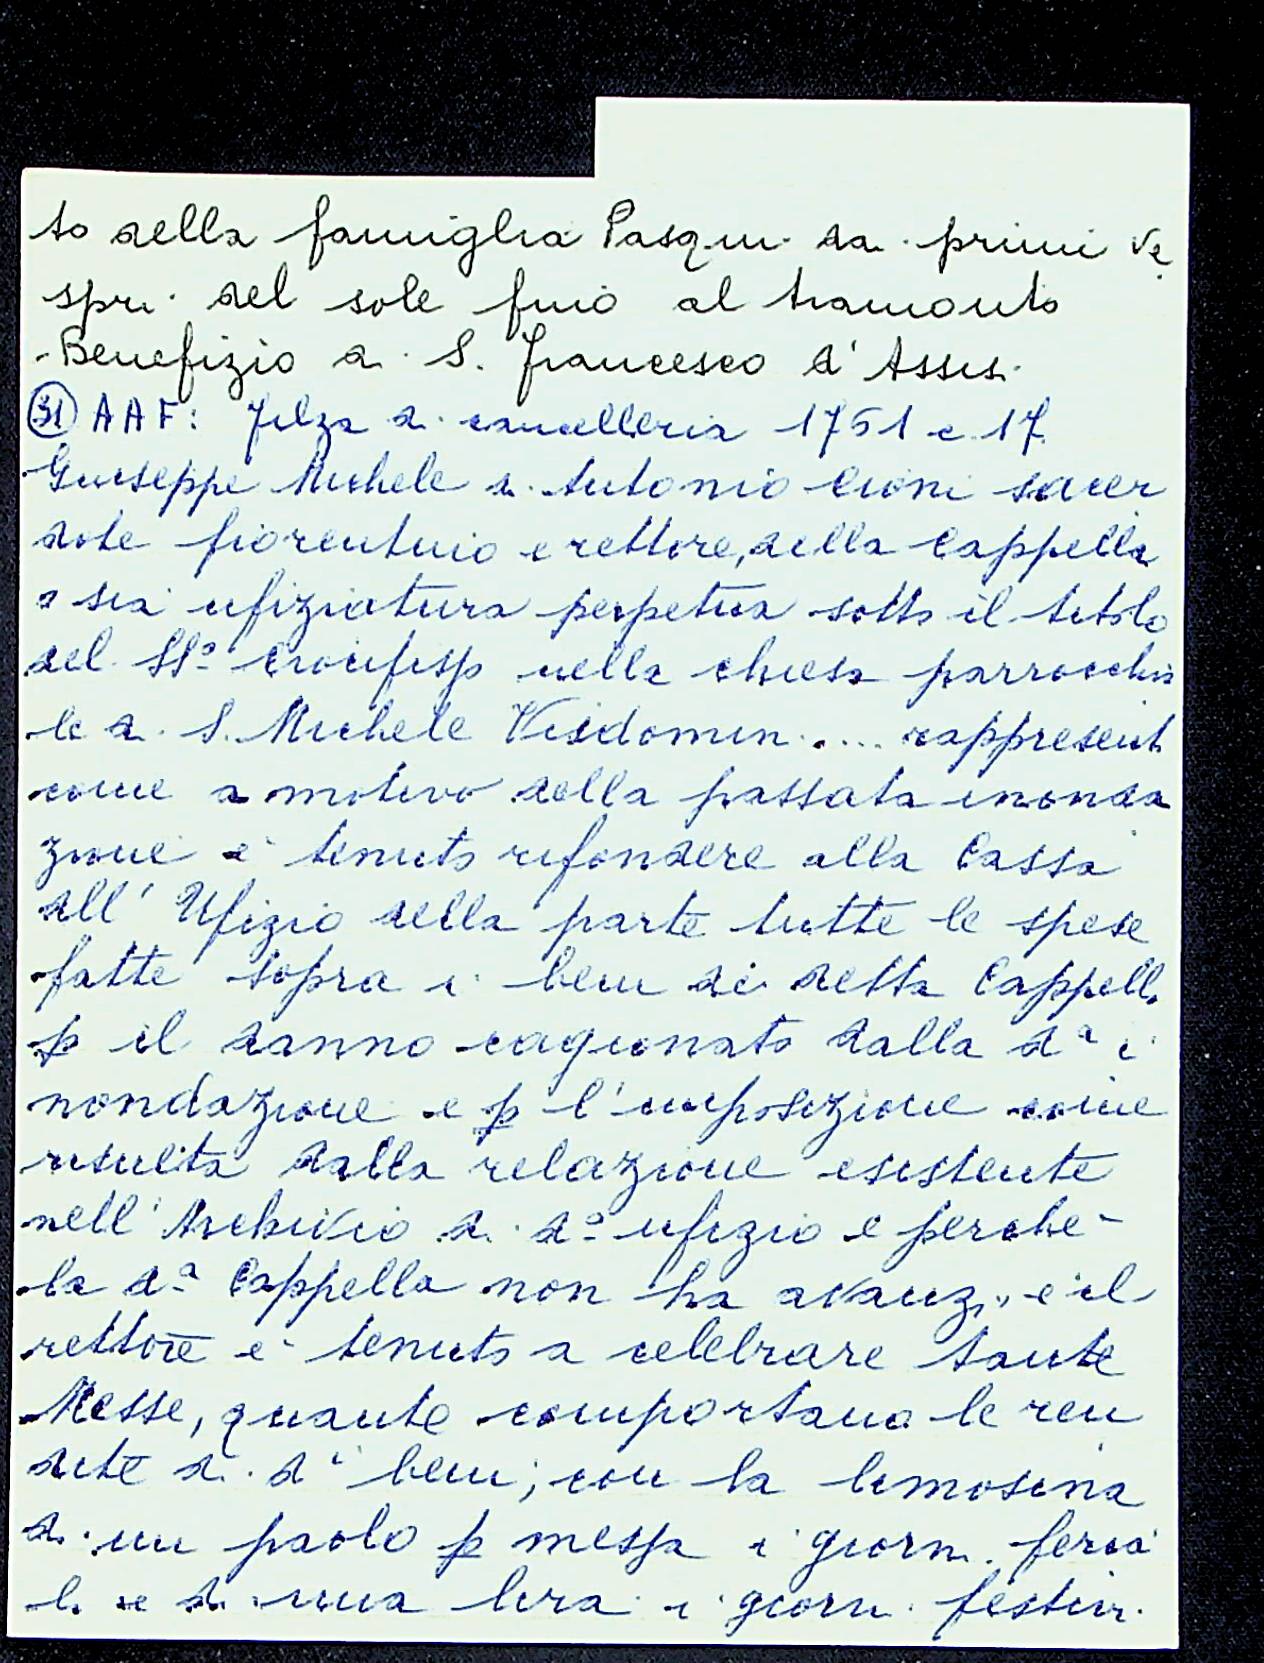 to della famiglia Pasqui da primi ve
spri del sole fino al tramonto
Benefizio di S. Francesco d'Assisi
(31) AAF: Filza di cancelleria 1751 c. 17
Giuseppe Michele di Antonio Cioni sacer
dote fiorentino e rettore, della Cappella
o sia ufiziatura perpetua sotto il titolo
del SSº Crocifisso nella chiesa parrocchia
le di S. Michele Visdomini .... rappresent
come a motivo della passata inonda
zione è tenuto rifondere alla Cassa
dell' Ufizio della parte tutte le spese
fatte sopra i beni di detta Cappella
p il danno cagionato dalla dª i
nondazione e p l'imposizione come
risulta dalla relazione esistente
nell'Archivio di dº ufizio e perche
la dª Cappella non ha avanzi, e il
rettore è tenuto a celebrare tante
Messe, quante comportano le ren
dite di dⁱ beni; con la limosina
di un paolo p messa i giorni feria
li e di una lira i giorni festivi.